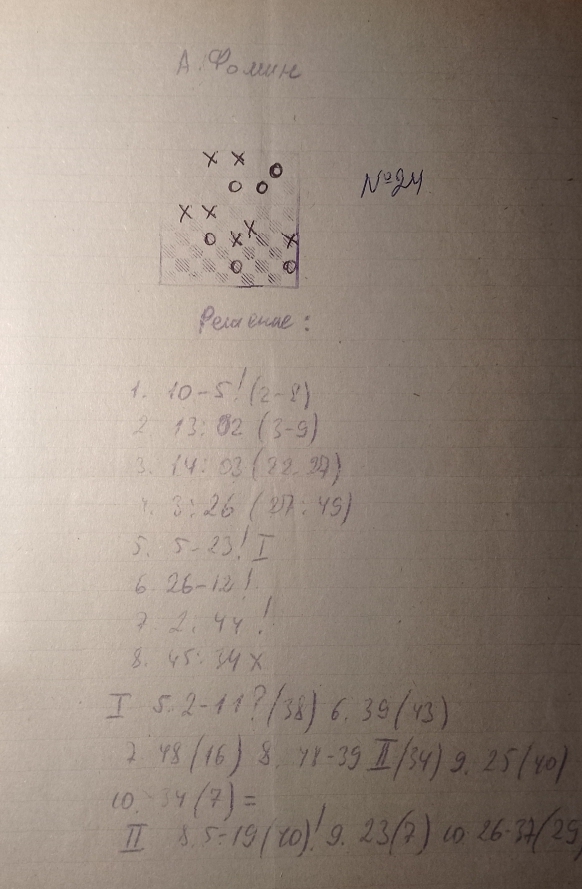 А. Фомин
№24
Решение:
1. 10-5! (2-8)
2 13:02 (3-9)
3. 14:03 (22-27)
4. 3:26 (27:49)
5. 5-23! I
6. 26-12!
7. 2:44!
8. 45:34 x
I 5. 2-11? (38) 6. 39 (43)
7 48 (16) 8. 48-39 II (34) 9. 25 (40)
10. 34 (7) =
II 8. 5-19 (40)! 9. 23 (7) 10. 26-37 (29)